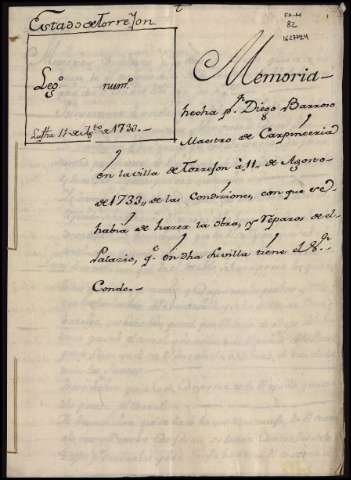 Estado de Torrejon
Leg.º num.º
Su fha 11 de Ag.to de 1733.
FA-M
82
Memoria
hecha p.r Diego Barroso
Maestro de Carpinteria
en la villa de Torrejon à 11 de Agosto
de 1733 de las Condiziones, con que se
habia de hazer la obra, y rèparos de el
Palazio, q.e en dha su villa tiene el S.or
Conde.